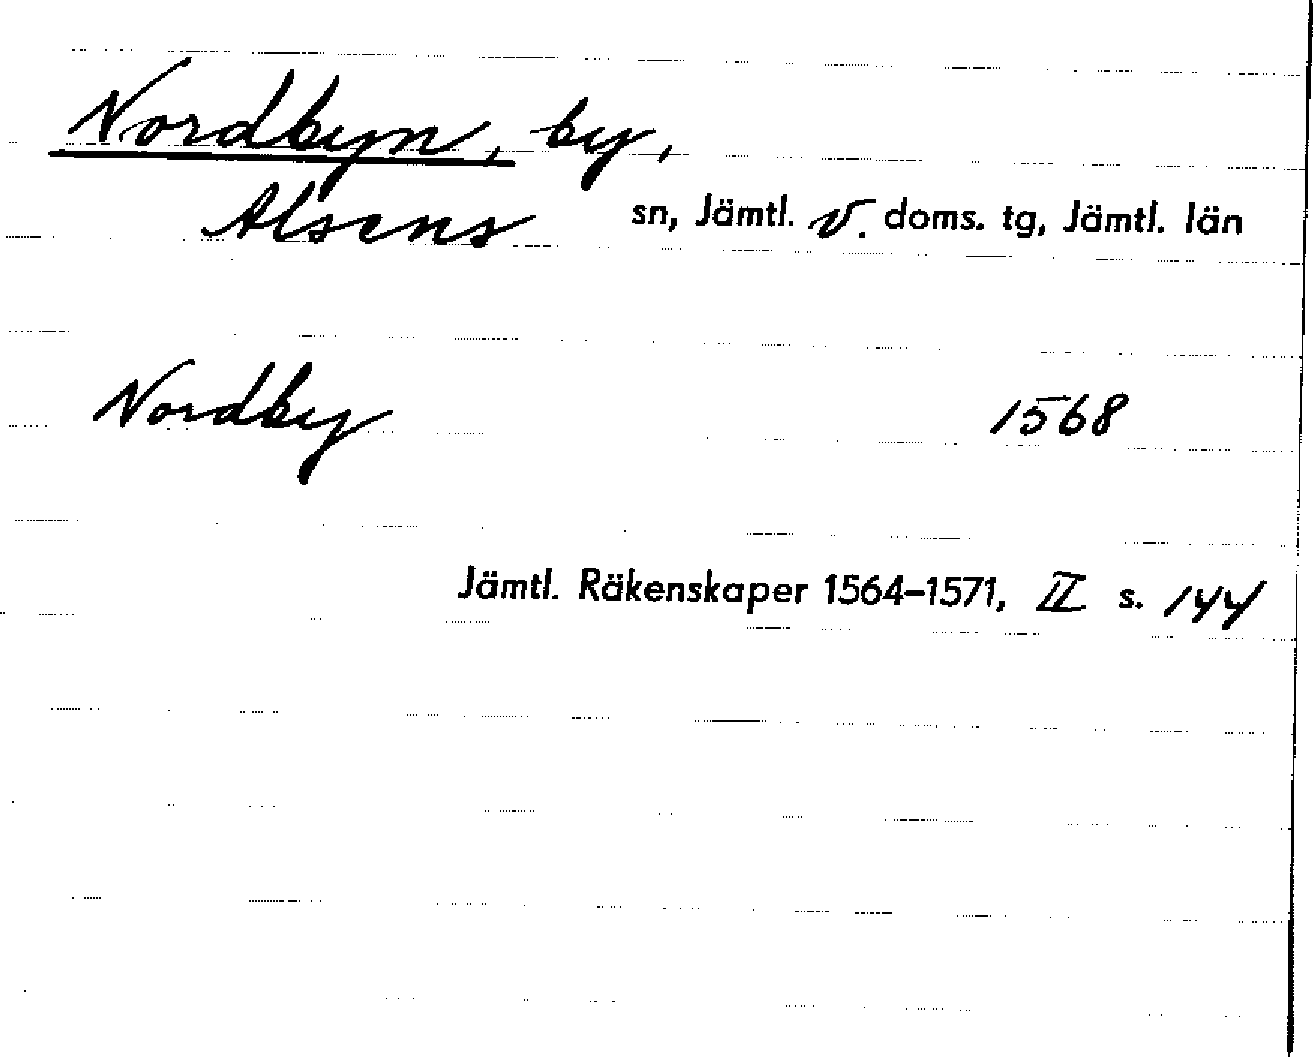 Nordbyn, by,
Alsens sn, Jämtl. v. doms. tg, Jämtl. län
Nordby 1568
Jämtl. Räkenskaper 1564–1571, II s. 144